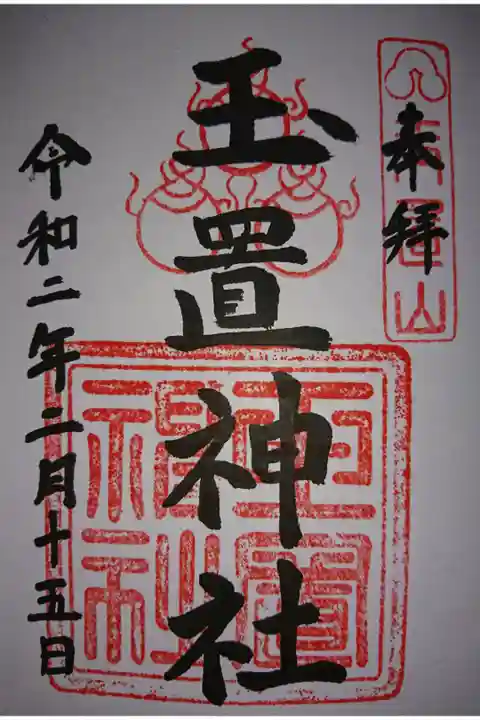 奉拝
玉置山
玉置神社
玉置神社
令和二年二月十五日